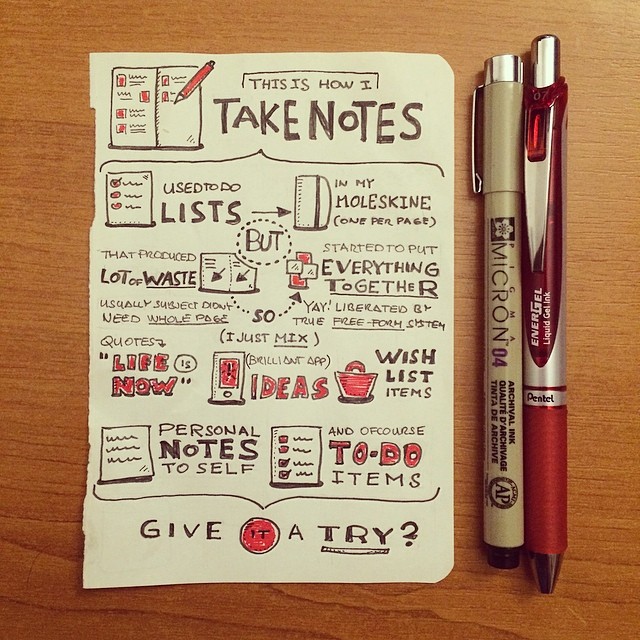 THIS IS HOW I
TAKE NOTES
USED TO DO
LISTS
IN MY
MOLESKINE
(ONE PER PAGE)
BUT
THAT PRODUCED
LOT OF WASTE
USUALLY SUBJECT DIDN'T
NEED WHOLE PAGE
SO
STARTED TO PUT
EVERYTHING
TOGETHER
YAY! LIBERATED BY
TRUE FREE-FORM SYSTEM
(I JUST MIX)
QUOTES
"LIFE IS
NOW"
(BRILLIANT APP)
IDEAS
WISH
LIST
ITEMS
PERSONAL
NOTES
TO SELF
AND OFCOURSE
TO-DO
ITEMS
GIVE IT A TRY?
PIGMA
MICRON 04
ARCHIVAL INK
QUALITÉ D'ARCHIVAGE
TINTA DE ARCHIVE
AP
07
ENERGEL
Liquid Gel Ink
Pentel